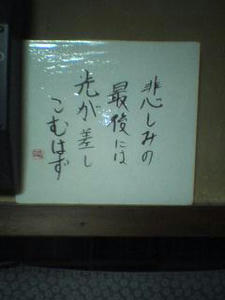 悲しみの
最後には
光が差し
こむはず